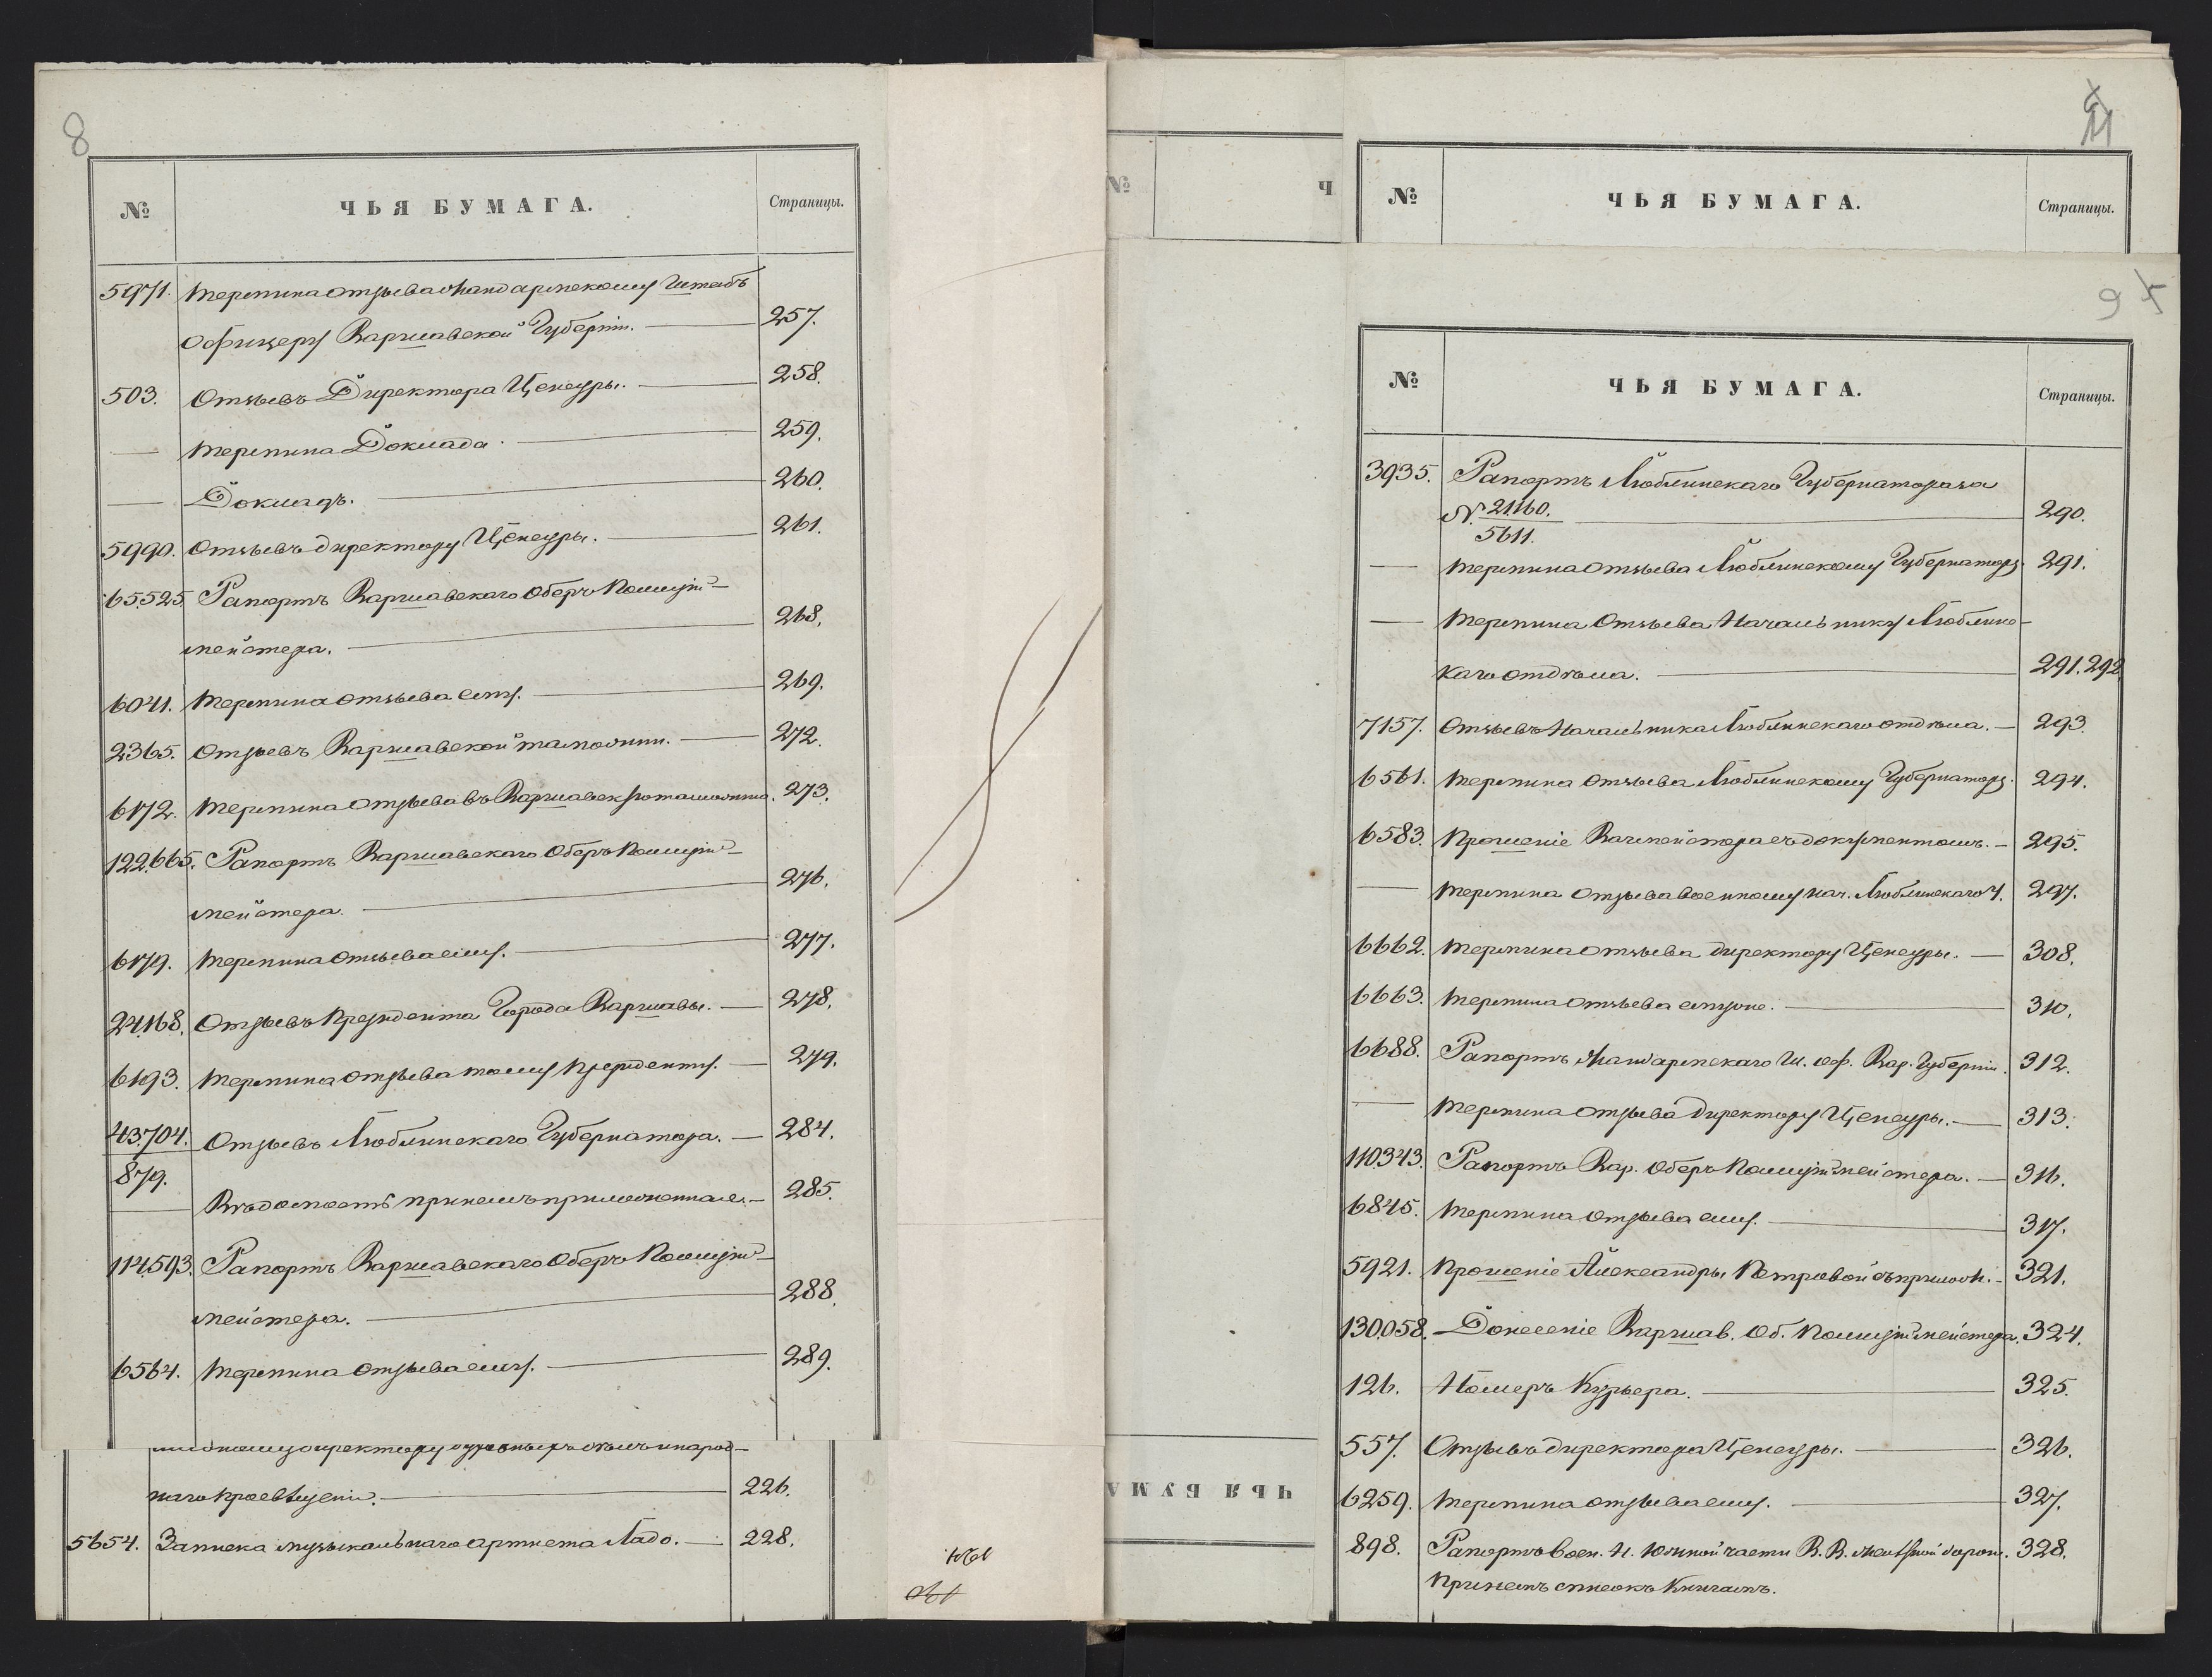 8
№ ЧЬЯ БУМАГА. Страницы.
5971. Терминна отзыва Жандармскому Штабъ
офицеру Варшавской Губерніи. — 257.
503. Отзывъ Директора Ценсуры. — 258.
— Терминна Доклада — 259.
— Докладъ. — 260.
5990. Отзывъ директору Ценсуры. — 261.
65.525. Рапортъ Варшавскаго Оберъ Полицій-
мейстера. — 268.
6041. Терминна отзыва ему. — 269.
2365. Отзывъ Варшавской таможни. — 272.
6172. Терминна отзыва въ Варшавскую таможню. 273.
122.665. Рапортъ Варшавскаго Оберъ Полицій-
мейстера. — 276.
6179. Терминна отзыва ему. — 277.
24168. Отзывъ Президента Города Варшавы. — 278.
6193. Терминна отзыва тому Президенту. — 279.
43.704. Отзывъ Люблинскаго Губернатора. — 284.
879.
— Вѣдомость при немъ приложенная — 285.
114.593. Рапортъ Варшавскаго Оберъ Полицій-
мейстера. — 288.
6564. Терминна отзыва ему. — 289.
директору духовныхъ дѣлъ и народ-
наго просвѣщенія. — 226.
5654. Записка музыкальнаго артиста Ладо. — 228.
№ Ч
ЧЬЯ БУМА
11
№ ЧЬЯ БУМАГА. Страницы.
9
№ ЧЬЯ БУМАГА. Страницы.
3935. Рапортъ Люблинскаго Губернатора за
N. 21160. — 290.
5611.
— Терминна отзыва Люблинскому Губернатору. 291.
— Терминна Отзыва Начальнику Люблинс-
каго отдѣла. — 291.292.
7157. Отзывъ Начальника Люблинскаго отдѣла. — 293.
6561. Терминна отзыва Люблинскому Губернатору. 294.
6583. Прошеніе Вахмейстера съ документомъ. — 295.
— Терминна отзыва Военному нач. Люблинскаго 297.
6662. Терминна отзыва директору Ценсуры. — 308.
6663. Терминна отзыва ему же. — 310.
6688. Рапортъ Жандармскаго Ш. оф. Вар. Губерніи. 312.
— Терминна отзыва директору Ценсуры. — 313.
110.343. Рапортъ Вар. Оберъ Полиціймейстера. — 316.
6845. Терминна отзыва ему. — 317.
5921. Прошеніе Александры Петровой съ прилож. — 321.
130.058. Донесеніе Варшав. Об. Полиціймейстера. 324.
126. Номеръ Курьера. — 325.
557. Отзывъ директора Ценсуры. — 326.
6259. Терминна отзыва ему. — 327.
898. Рапортъ Воен. Н. Южной части В. В. желѣзной дорог. 328.
при немъ списокъ Книгамъ.